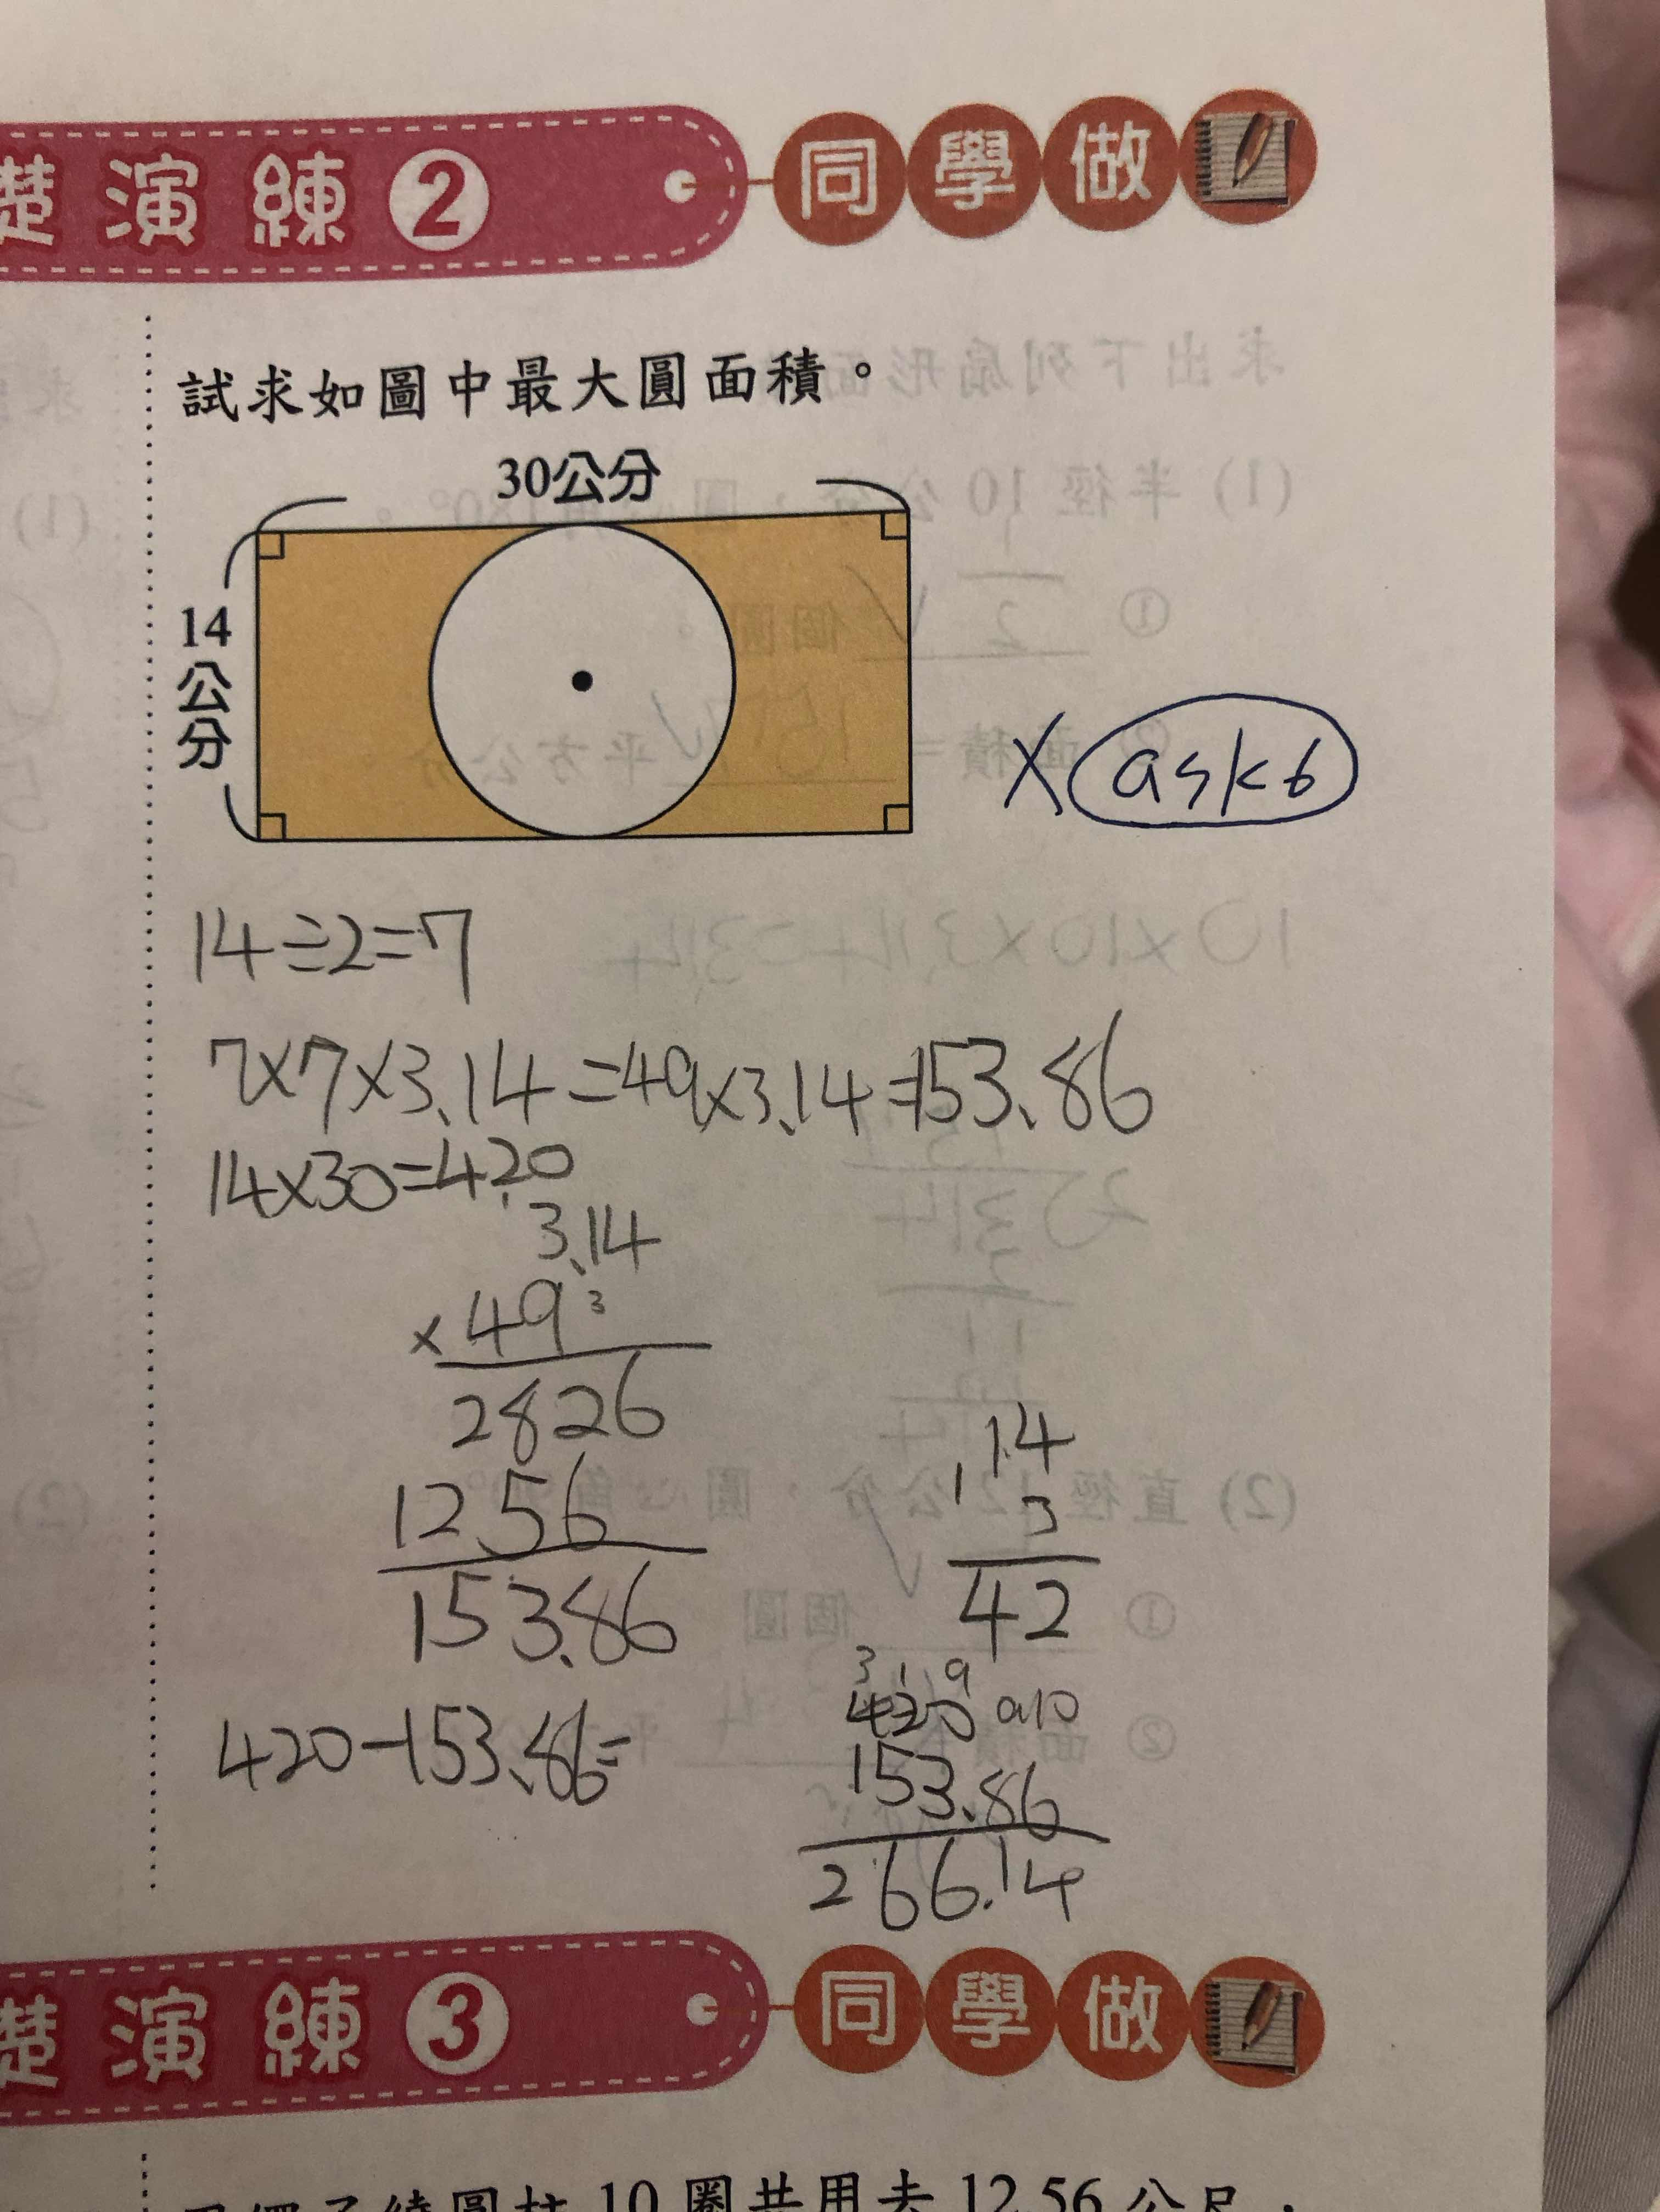 礎演練2 同學做
試求如圖中最大圓面積。
30公分
14公分
X ask6
14÷2=7
7×7×3.14=49×3.14=153.86
14×30=420
3.14
×49 3
2826
1256
153.86
1 14
3
42
420-153.86=
3 1 9
420 910
153.86
266.14
礎演練3 同學做
10圈共用去12.56公尺，